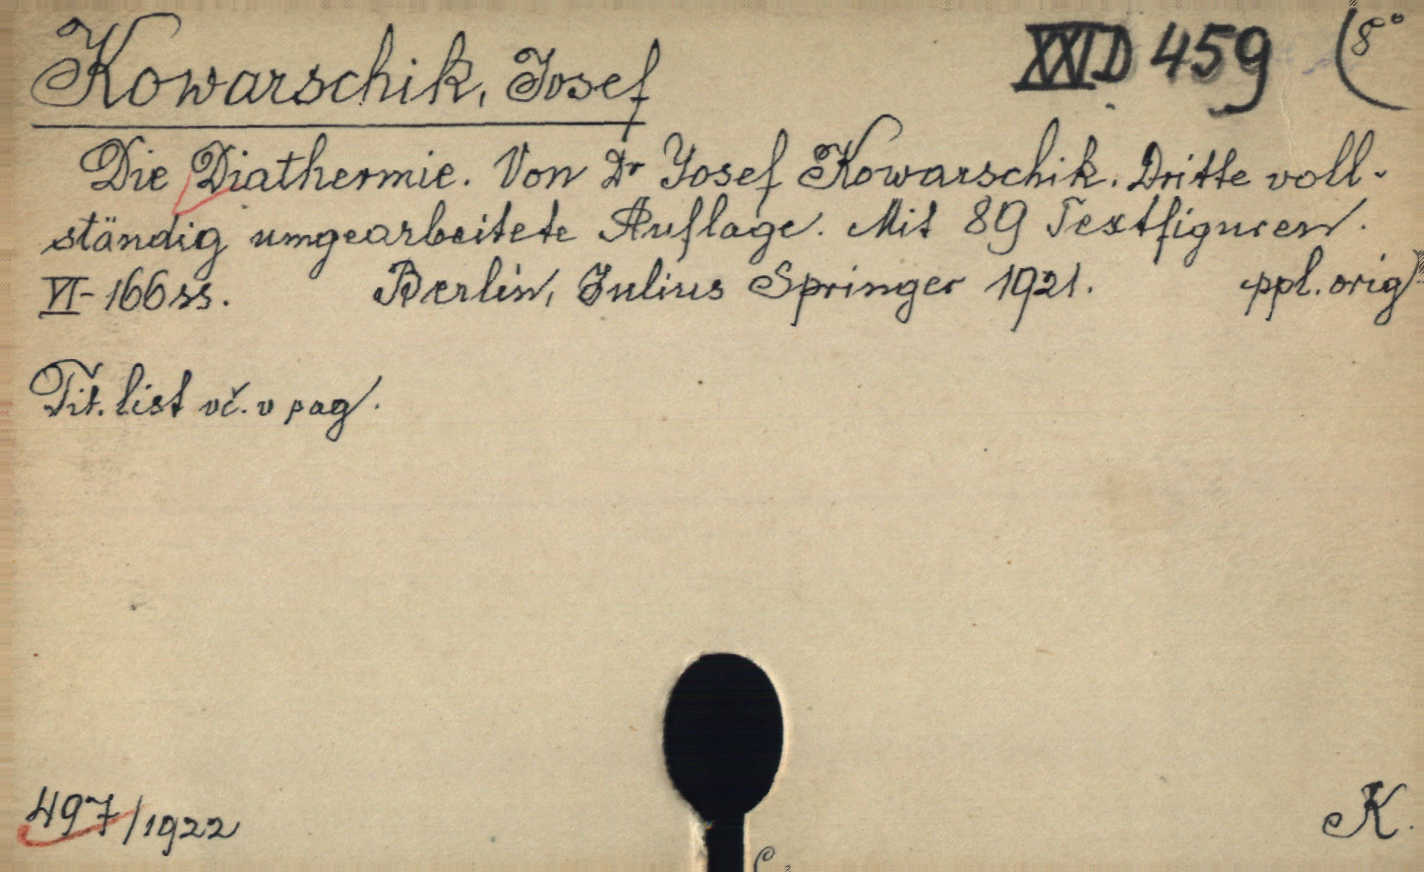 Kowarschik, Josef XXI D 459 (8°
Die Diathermie. Von Dr Josef Kowarschik. Dritte voll-
ständig umgearbeitete Auflage. Mit 89 Textfiguren.
VI-166 ss. Berlin, Julius Springer 1921. ppl. orig
Tit. list vč. v pag.
497/1922 K.